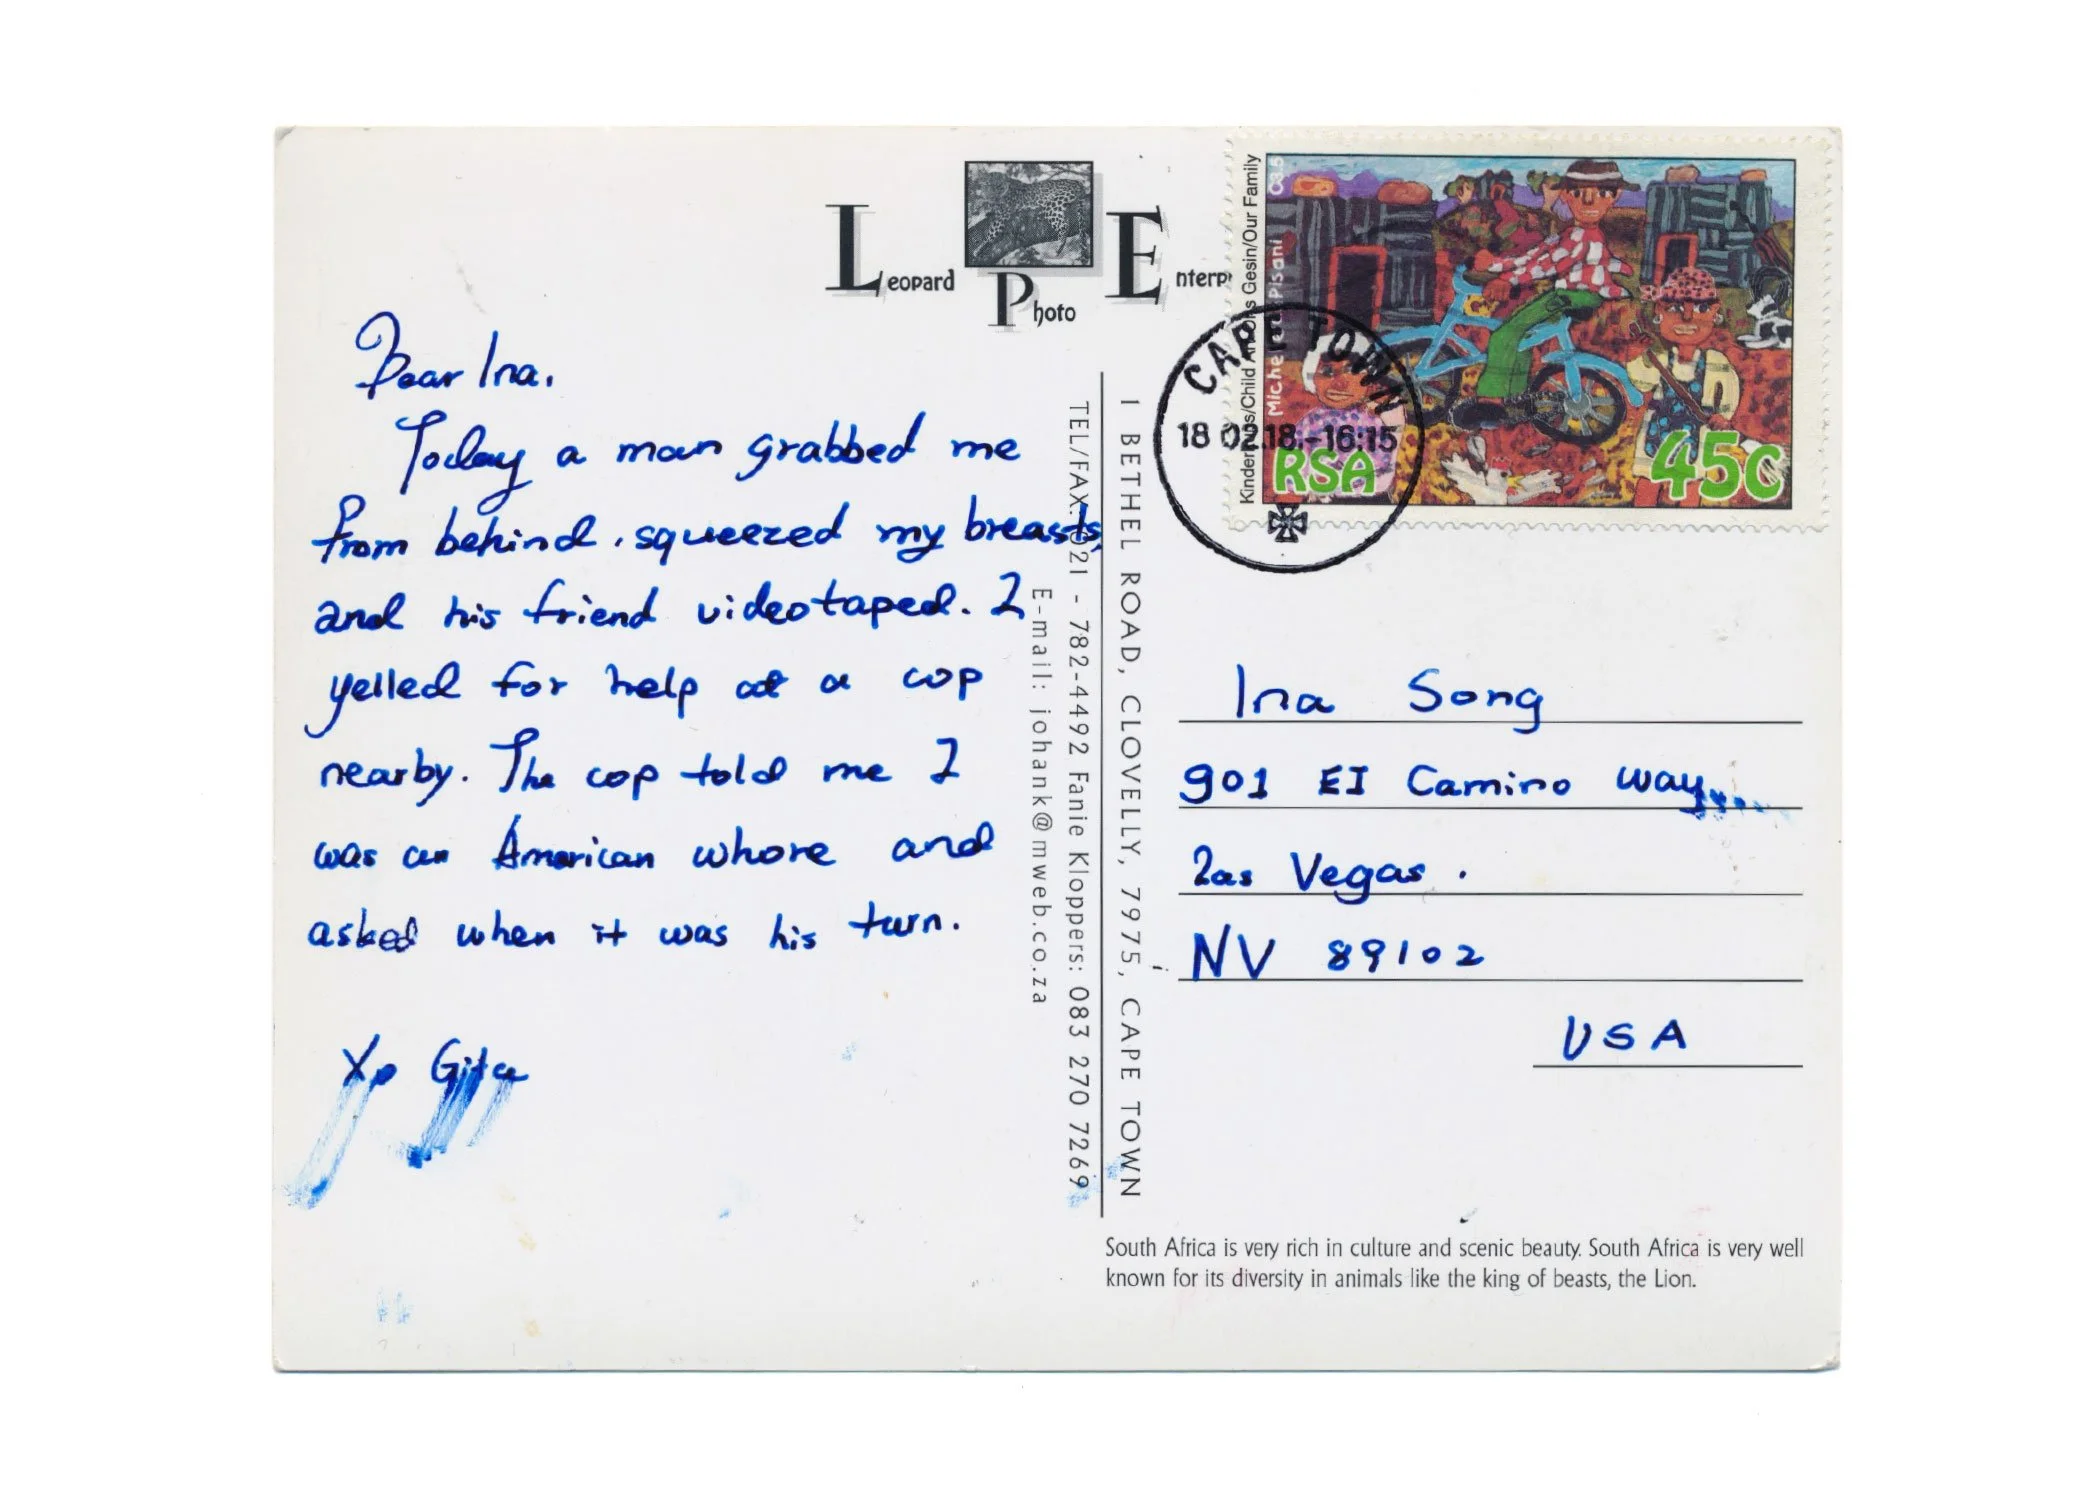 Leopard Photo Enterp
Dear Ina.
Today a man grabbed me
from behind, squeezed my breasts,
and his friend videotaped. I
yelled for help at a cop
nearby. The cop told me I
was an American whore and
asked when it was his turn.
Xo Gita
TEL/FAX: 021 - 782-4492 Fanie Kloppers: 083 270 7269
E-mail: johank@mweb.co.za
1 BETHEL ROAD, CLOVELLY, 7975, CAPE TOWN
Kinderregte/Child Art Ons Gesin/Our Family
Pisani C3.5
CAPE TOWN
18 02.18.-16:15
RSA
45c
Ina Song
901 El Camino way
Las Vegas.
NV 89102
USA
South Africa is very rich in culture and scenic beauty. South Africa is very well
known for its diversity in animals like the king of beasts, the Lion.